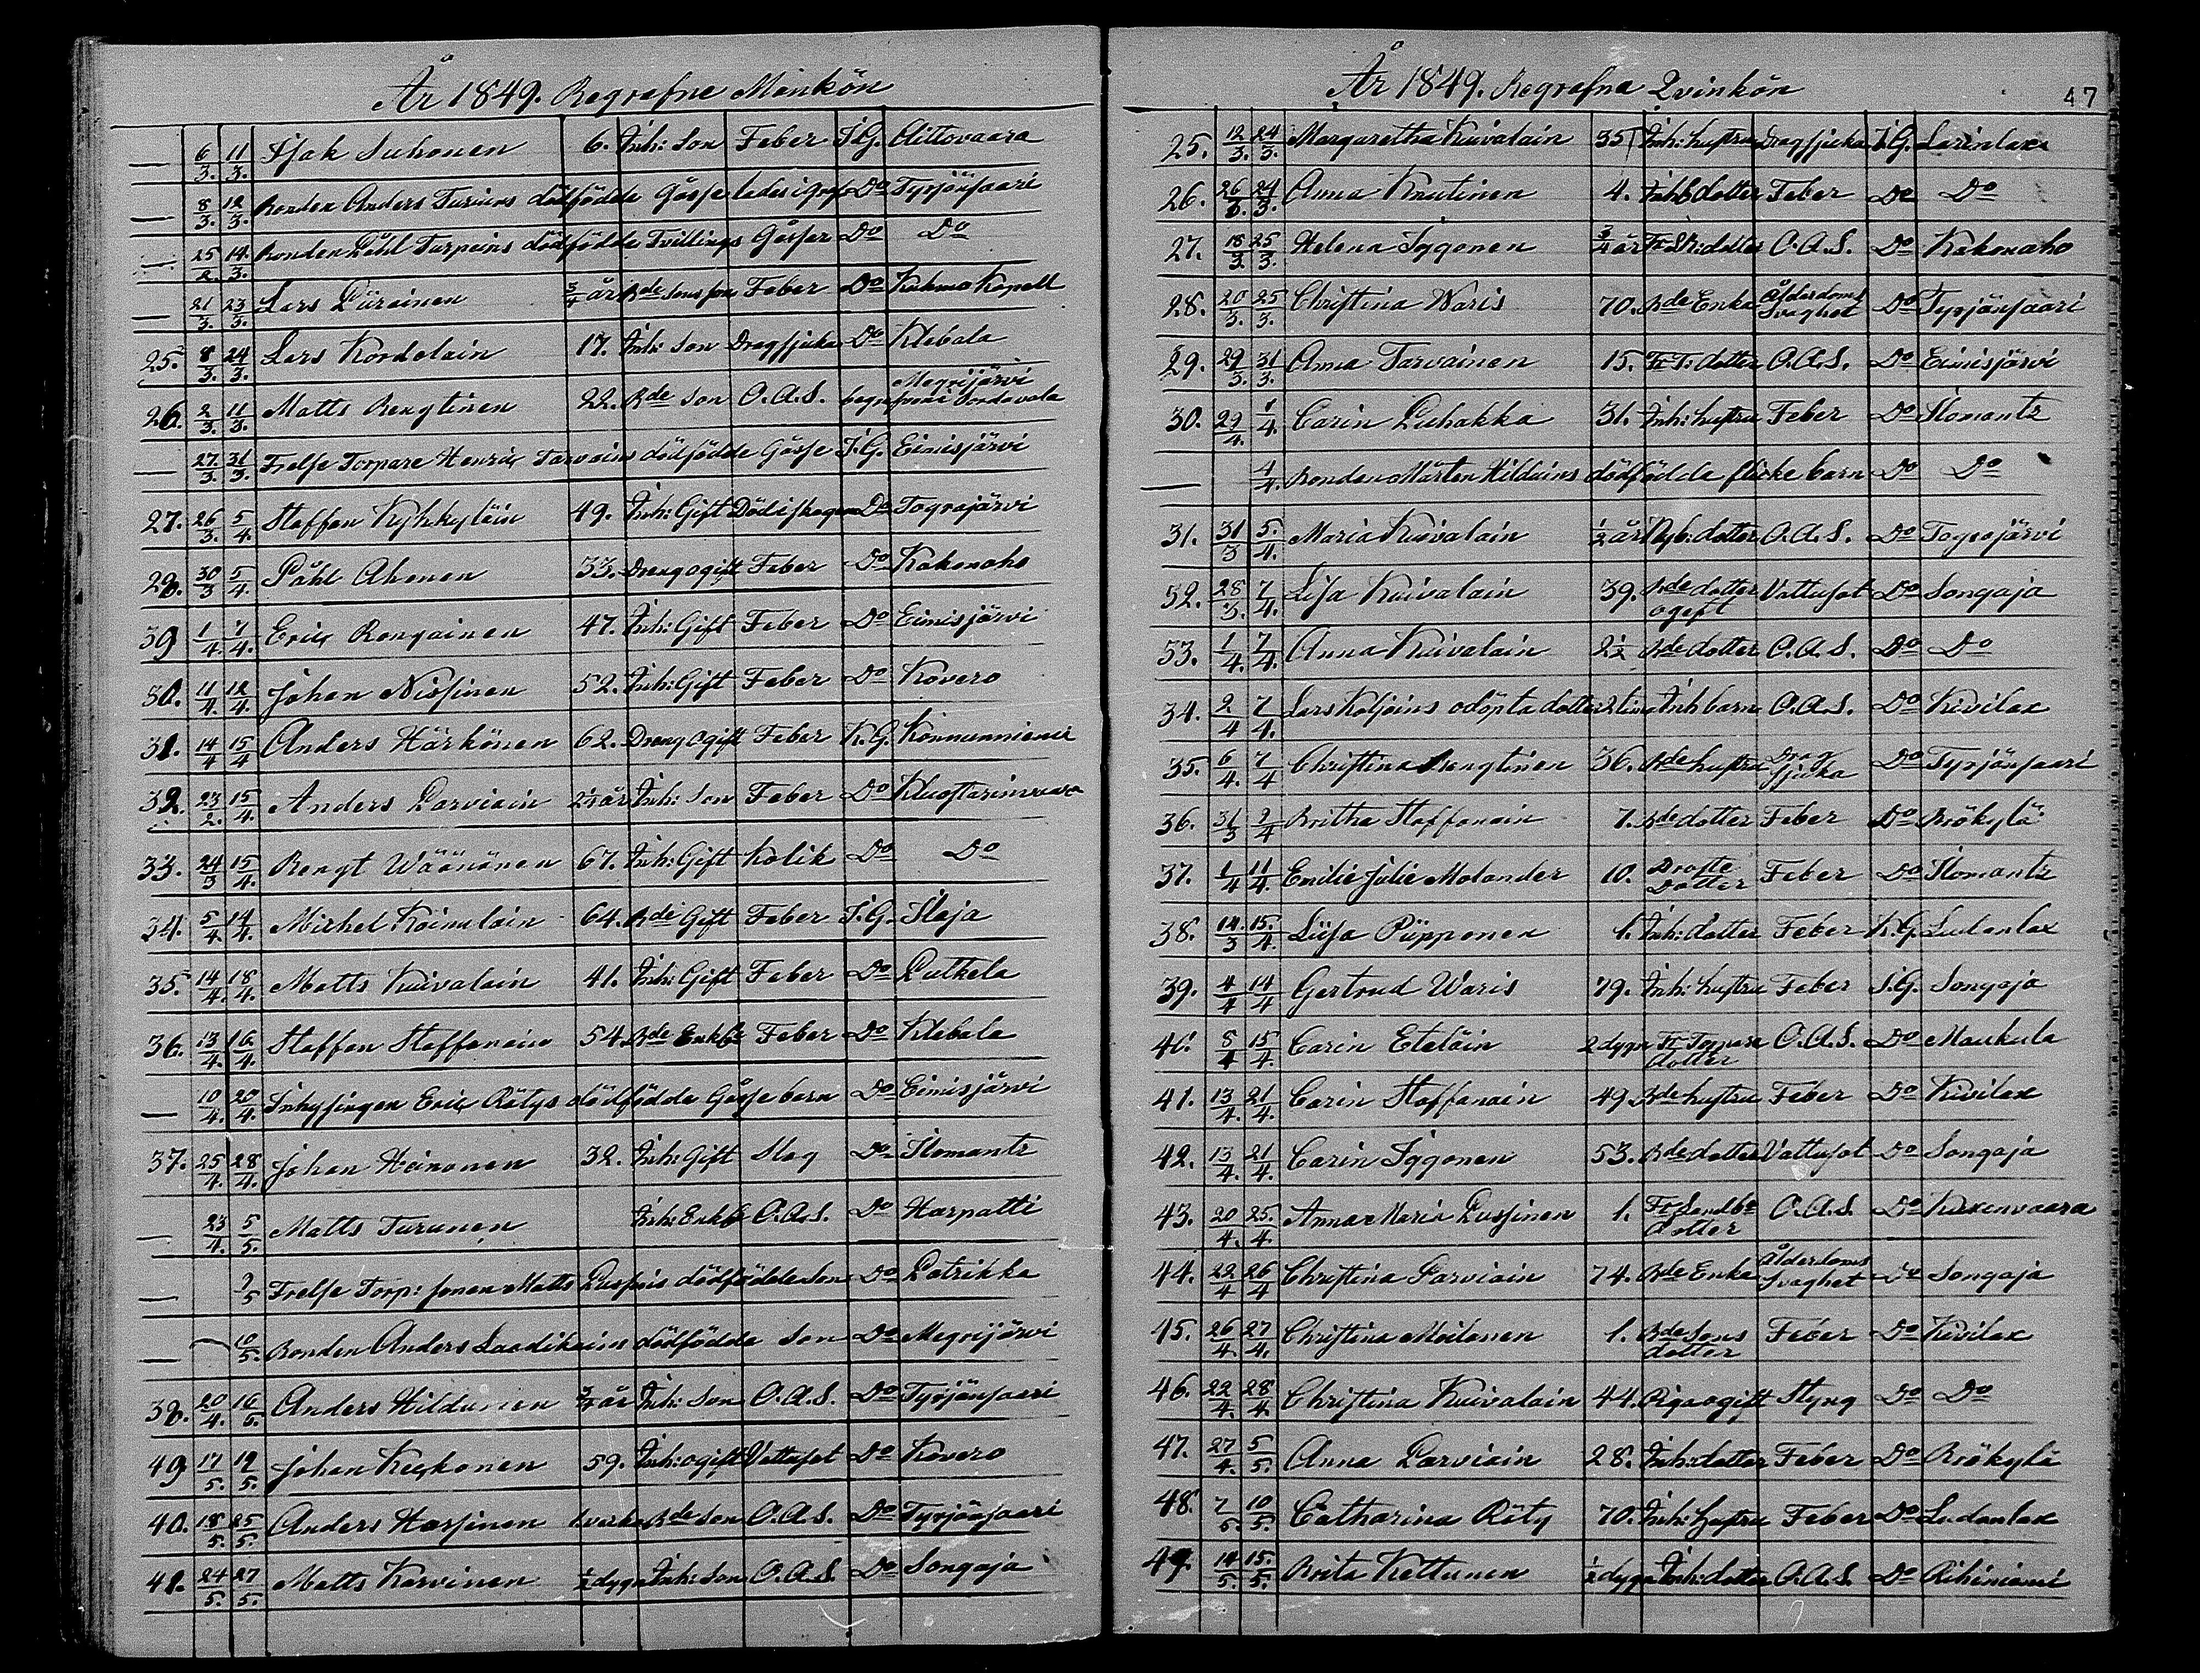 År 1849. Begrafne Mankön
— 6/3. 11/3. Isak Suhonen 6. Inh: Son Feber I.G. Aittovaara
— 8/3. 12/3. Bonden Anders Turuins dödfödda Gosse lades i graf Do Tyrjänsaari
— 25/2. 14/3. Bonden Påhl Turpeins dödfödda Tvillings Gossar Do Do
— 21/3. 23/3. Lars Piirainen 3/4 år Bde Sons son Feber Do Kuhmo Kapell
25. 8/3. 24/3. Lars Kordelain 17. Inh: Son Dragsjuka Do Klebala
26. 2/3. 11/3. Matts Bengtinen 22. Bde Son O.A.S. begrafven i Sordavala Megrijärvi
— 27/3. 31/3. Frelse Torpare Henric Tarvains dödfödde Gosse I.G. Eimisjärvi
27. 26/3. 5/4. Staffan Kyhkyläin 49. Inh: Gift Död i skogen Do Tograjärvi
28. 30/3 5/4 Påhl Ahonen 33. Dreng ogift Feber Do Kakonaho
39 1/4 7/4. Eric Rongainen 47. Inh: Gift Feber Do Eimisjärvi
30. 11/4. 12/4. Johan Nissinen 52. Inh: Gift Feber Do Kovero
31. 14/4 15/4 Anders Härkönen 62. Dreng ogift Feber K.G. Konnunniemi
32. 23/2. 15/4. Anders Parviain 2 1/4 år Inh: Son Feber Do
33. 24/3 15/4. Bengt Wäänänen 67. Inh: Gift Kolik Do Do
34. 5/4. 14/4. Michel Koinulain 64. Bde Gift Feber I.G. Ilaja
35. 14/4. 18/4. Matts Kuivalain 41. Inh: Gift Feber Do Putkela
36. 13/4. 16/4. Staffan Staffanain 54. Bde Enkl: Feber Do Klebala
— 10/4. 20/4. Inhysingen Eric Rätys dödfödda Gosse barn Do Eimisjärvi
37. 25/4. 28/4. Johan Heinonen 32. Inh: Gift Slag Do Ilomants
— 23/4. 5/5. Matts Turunen Inh: Enkl O.A.S. Do Harpatti
— 9/5 Frelse Torp: sonen Matts Puspois dödfödda Son Do Patrikka
— 10/5. Bonden Anders Laadikains dödfödda Son Do Megrijärvi
38. 20/4. 16/5. Anders Hildunen 3/4 år Inh: Son O.A.S. Do Tyrjänsaari
49 17/5. 19/5. Johan Kickonen 59. Inh: ogift Vattusot Do Kovero
40. 18/5. 25/5. Anders Hassinen 1. vecka Bde Son O.A.S. Do Tyrjänsaari
41. 24/5. 27/5. Matts Karvinen 1/2 dygn Inh: Son O.A.S. Do Songaja
År 1849. Begrafna Qvinkön
47
25. 12/3. 24/3. Margaretha Kuivalain 35 Inh: hustru Dragsjuka I.G. Larinlax
26. 26/3. 24/3. Anna Knutinen 4. Inh: dotter Feber Do Do
27. 18/3 25/3. Helena Iggonen 3/4 år Fr Sk: dotter O.A.S. Do Kakonaho
28. 20/3. 25/3. Christina Waris 70. Bde Enka Ålderdoms Svaghet Do Tyrjänsaari
29. 29/3. 31/3. Anna Tarvainen 15. Fr T: dotter O.A.S. Do Eimisjärvi
30. 29/4. 1/4. Carin Puhakka 31. Inh: hustru Feber Do Ilomants
— 4/4. Bonden Mårten Hilduins dödfödda flicke barn Do Do
31. 31/3 5/4. Maria Kuivalain 1/2 år Nyb: dotter O.A.S. Do Tograjärvi
52. 28/3. 7/4. Lisa Kuivalain 39. Bde dotter ogift Vattusot Do Songaja
53. 1/4. 7/4. Anna Kuivalain 2 1/2 Bde dotter O.A.S. Do Do
34. 2/4 7/4. Lars Koljoins odöpta dotter 2 tim Inh barn O.A.S. Do Kivilax
35. 6/4. 7/4 Christina Bengtinen 36. Bde hustru Drag Sjuka Do Tyrjänsaari
36. 31/3 9/4 Britha Staffanain 7. Bde dotter Feber Do Miökylä
37. 1/4 11/4. Emilie Julie Molander 10. Dotter Feber Do Ilomants
38. 14/3 15/4. Liisa Piipponen 1. Inh: dotter Feber K.G. Ludanlax
39. 4/4 14/4 Gertrud Waris 79. Inh: hustru Feber I.G. Songaja
40. 8/4 15/4. Carin Eteläin 2 dygn Fr Torpare dotter O.A.S. Do Maukula
41. 13/4. 21/4. Carin Staffanain 49 Bde hustru Feber Do Kivilax
42. 13/4. 21/4. Carin Iggonen 53. Bde dotter Vattusot Do Songaja
43. 20/4. 25/4. Anna Maria Pussinen 1. Fr Landb: dotter O.A.S. Do Kuxenvaara
44. 22/4 26/4 Christina Parviain 74. Bde Enka Ålderdoms Svaghet Do Songaja
45. 26/4. 27/4. Christina Moilanen 1. Bde Sons dotter Feber Do Kivilax
46. 22/4. 28/4. Christina Kuivalain 44. Piga ogift Styng Do Do
47. 27/4. 5/5. Anna Parviain 28. Inh: dotter Feber Do Miökylä
48. 7/5. 10/5. Catharina Räty 70. Inh: hustru Feber Do Ludanlax
49. 14/5. 15/5. Brita Kettunen 1/2 dygn Inh: dotter O.A.S. Do Riihiniemi